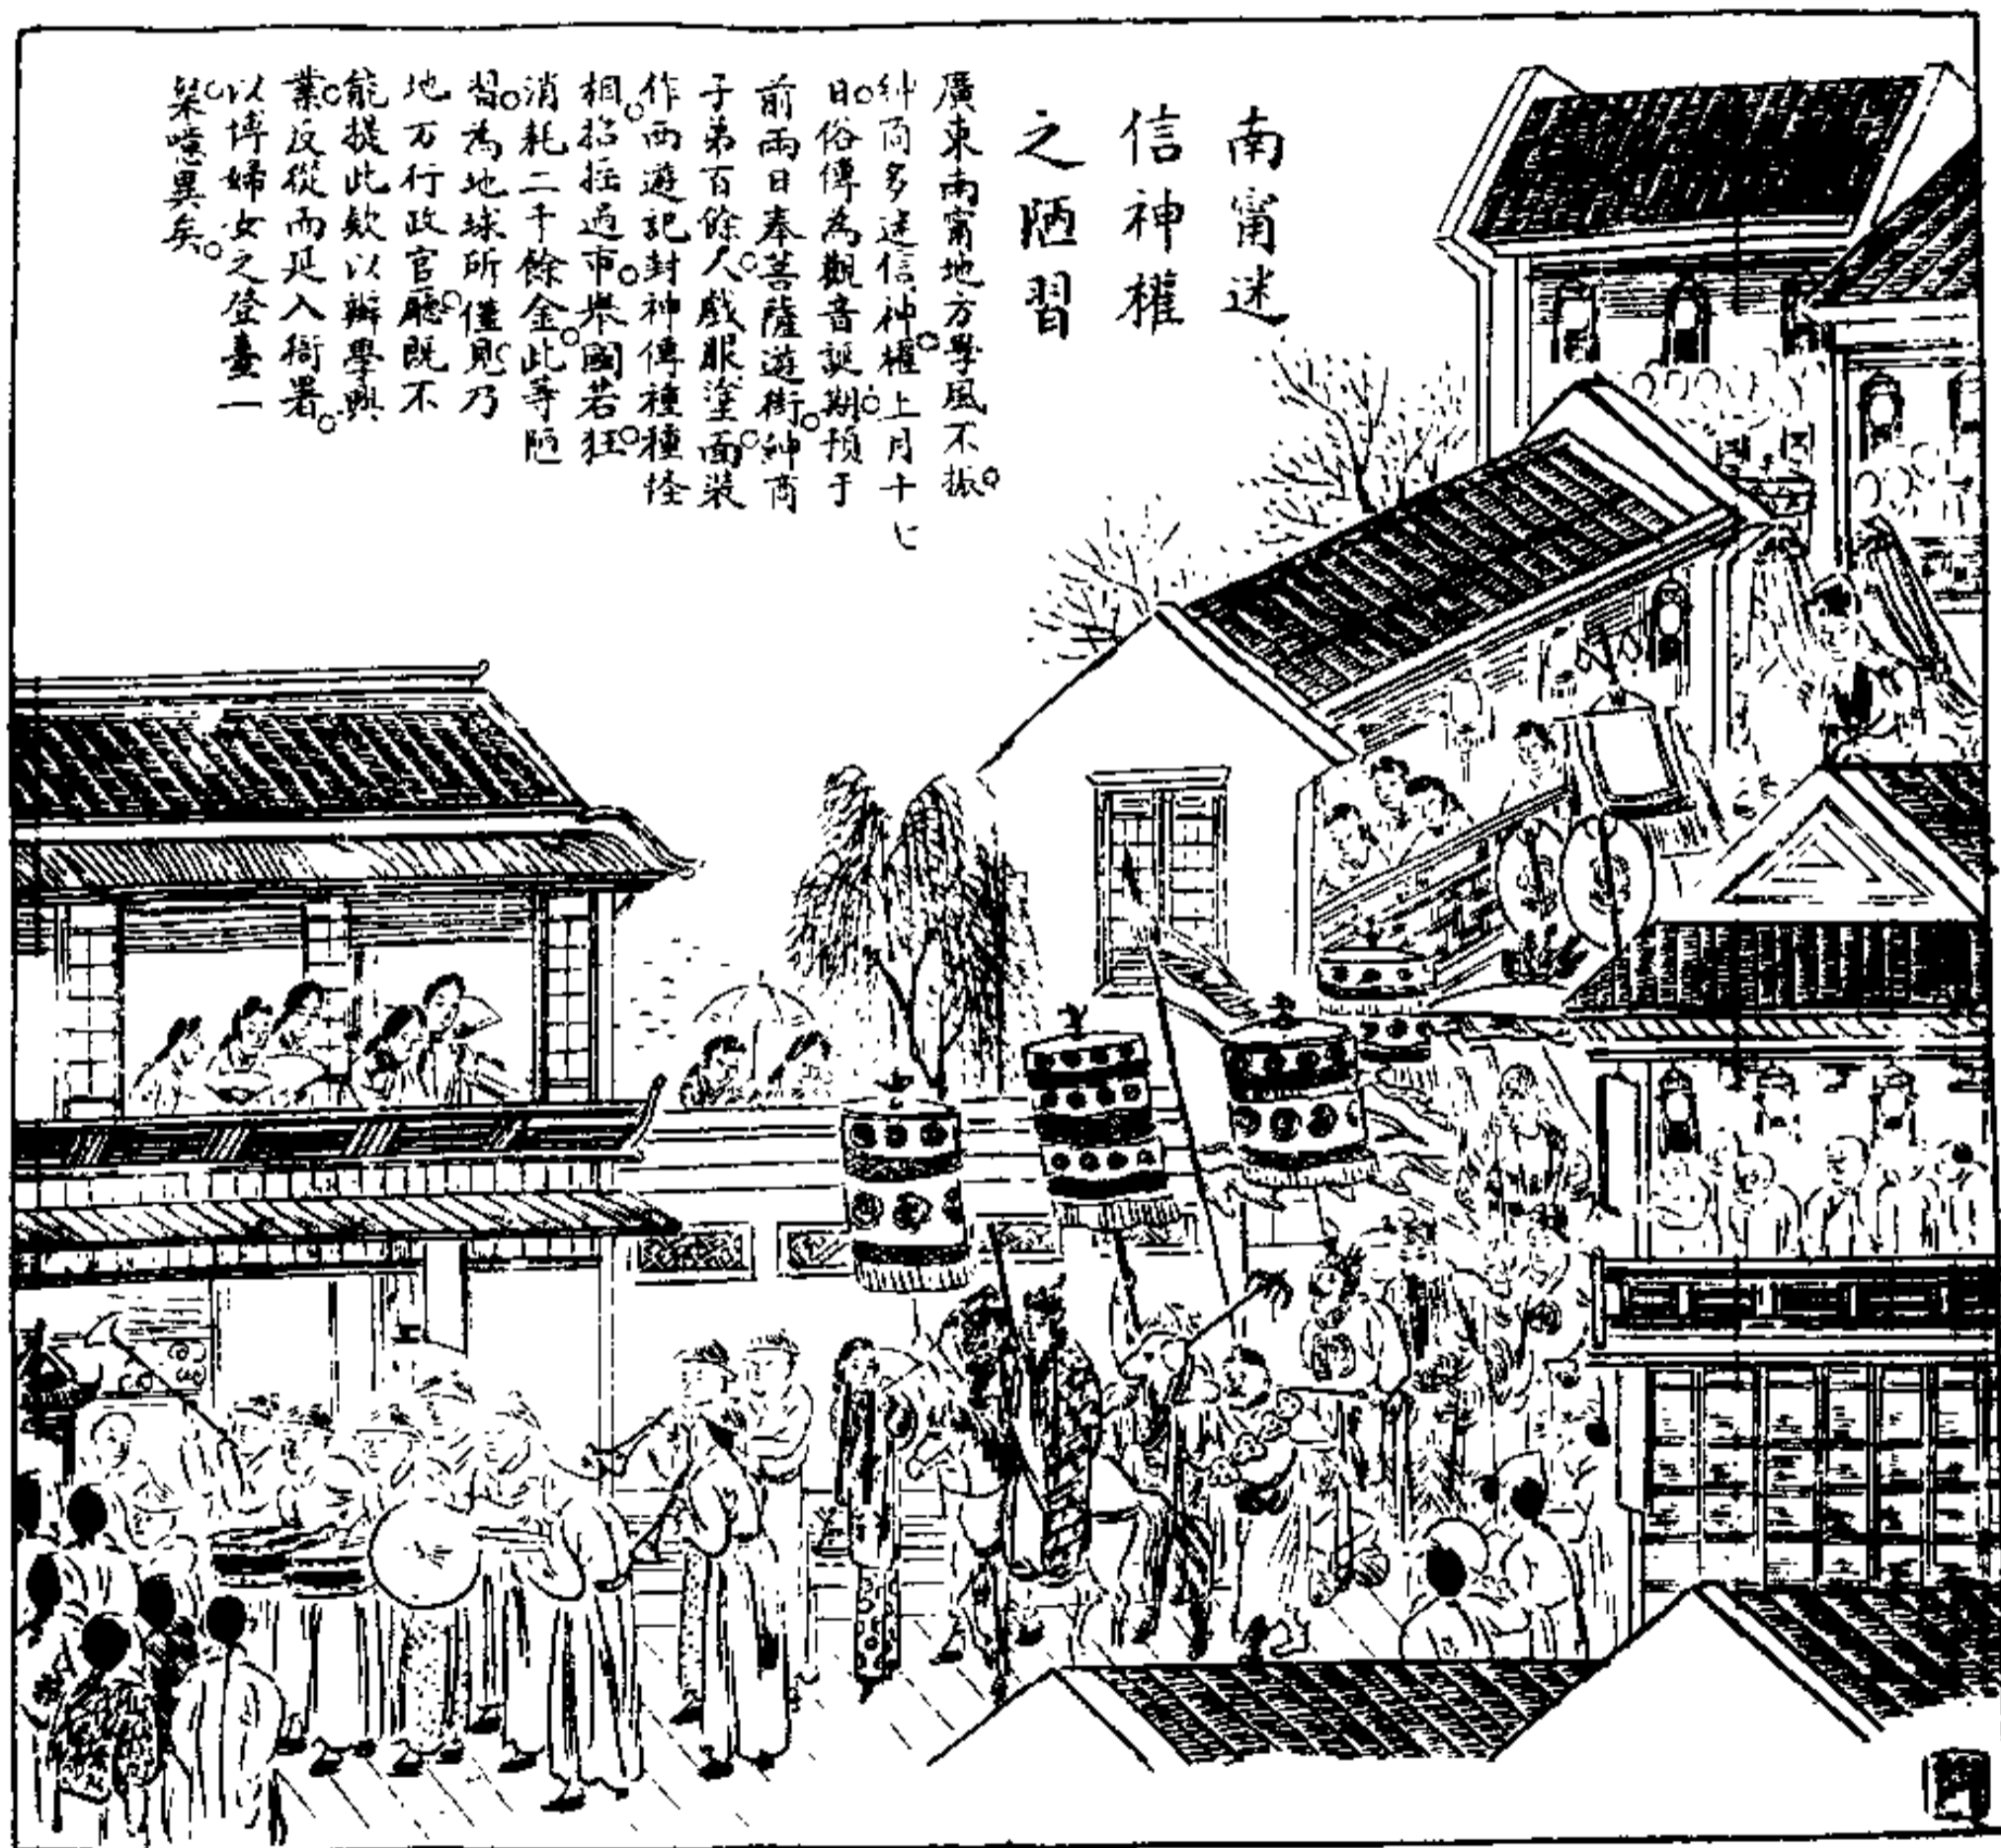 南甯迷
信神權
之陋習
廣東南甯地方學風不振。
紳商多迷信神權。上月十七
日。俗傳為觀音誕期。預于
前兩日奉菩薩遊街。紳商
子弟百餘人。戲服塗面。裝
作西遊記封神傳種種怪
相。招搖過市。舉國若狂。
消耗二千餘金。此等陋
習。為地球所僅見。乃
地方行政官廳。既不
能提此欵以辦學興
業。反從而是入衙署。
以博婦女之登臺一
粲。噫異矣。